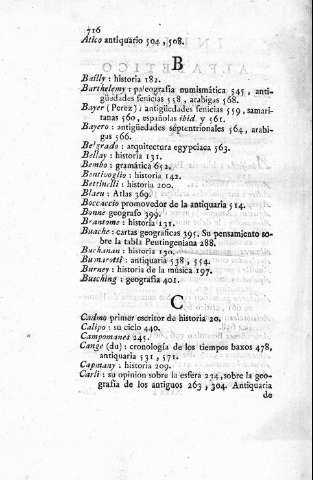 716
Atico antiquario 504, 508.
B
Bailly: historia 182.
Barthelemy: paleografia numismática 545, anti-
güedades fenicias 558, arabigas 568.
Bayer (Perez): antigüedades fenicias 559, samari-
tanas 560, españolas ibid. y 561.
Bayero: antigüedades séptentrionales 564, arabi-
gas 566.
Belgrado: arquitectura egypciaca 563.
Bellay: historia 131.
Bembo: gramática 652.
Bentivoglio: historia 142.
Bettinelli: historia 200.
Blaeu: Atlas 369.
Boccaccio promovedor de la antiquaria 514.
Bonne geografo 399.
Brantome: historia 131.
Buache: cartas geograficas 395. Su pensamiento so-
bre la tabla Peutingeniana 288.
Buchanan: historia 130.
Buonarotti: antiquaria 538, 554.
Burney: historia de la música 197.
Busching: geografia 401.
C
Cadmo primer escritor de historia 20.
Calipo: su ciclo 440.
Campomanes 245.
Cange (du): cronología de los tiempos baxos 478,
antiquaria 531, 571.
Capmany: historia 209.
Carli: su opinion sobre la esfera 234, sobre la geo-
grafia de los antiguos 263, 304. Antiquaria
de